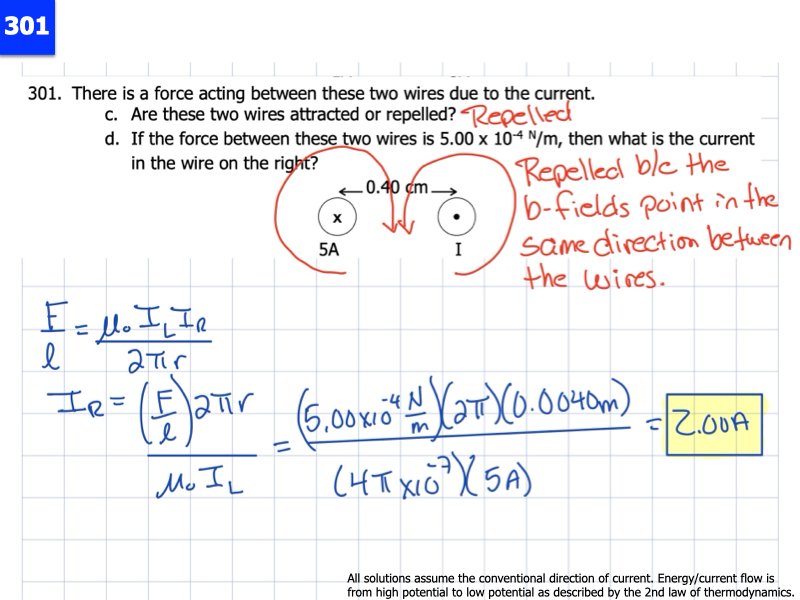 301
301. There is a force acting between these two wires due to the current.
c. Are these two wires attracted or repelled? Repelled
d. If the force between these two wires is 5.00 x 10⁻⁴ N/m, then what is the current
in the wire on the right?
Repelled b/c the
b-fields point in the
same direction between
the wires.
0.40 cm
x •
5A I
F/l = μ₀ I_L I_R / 2πr
I_R = (F/l) 2πr / μ₀ I_L = (5.00x10⁻⁴ N/m)(2π)(0.0040m) / (4πx10⁻⁷)(5A) = 2.00A
All solutions assume the conventional direction of current. Energy/current flow is
from high potential to low potential as described by the 2nd law of thermodynamics.